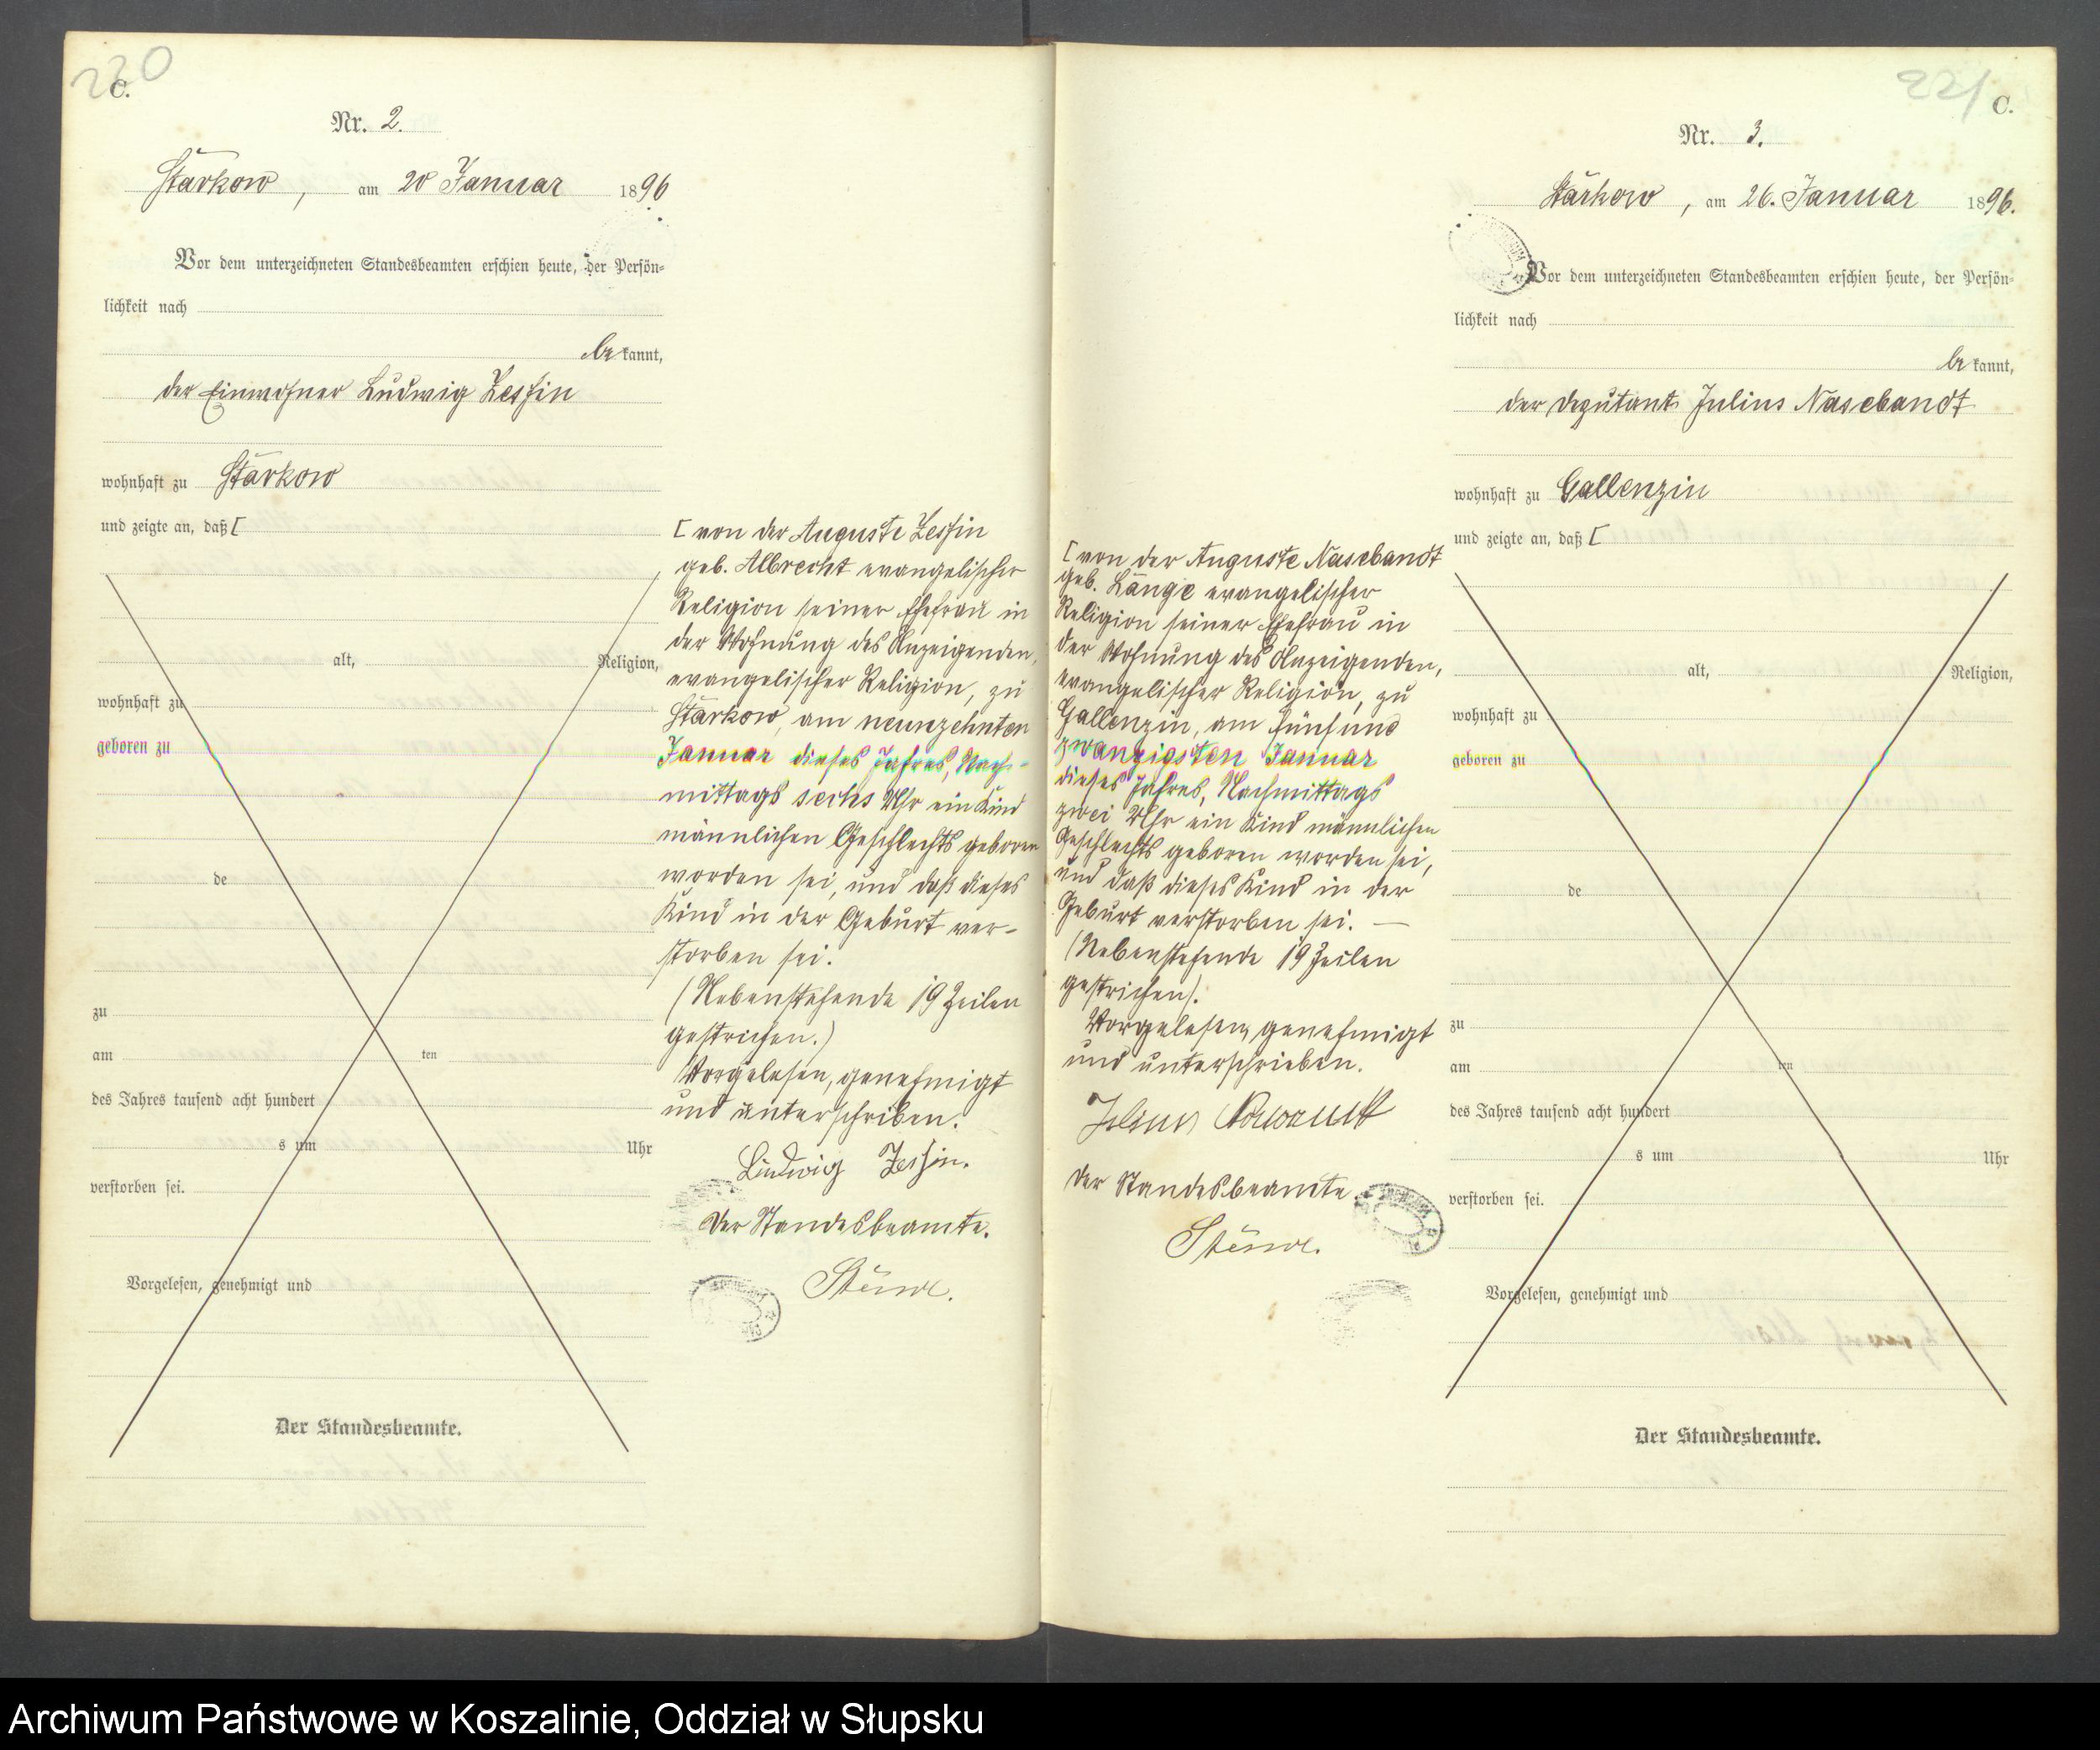 220
C.
Nr. 2.
Starkow, am 20 Januar 1896
Vor dem unterzeichneten Standesbeamten erschien heute, der Persön-
lichkeit nach
bekannt,
der Einwohner Ludwig Zessin
wohnhaft zu Starkow
und zeigte an, daß [
alt, Religion,
wohnhaft zu
geboren zu
de
zu
am ten
des Jahres tausend acht hundert
s um Uhr
verstorben sei.
Vorgelesen, genehmigt und
Der Standesbeamte.
[ von der Auguste Zessin
geb. Albrecht evangelischer
Religion seiner Ehefrau in
der Wohnung des Anzeigenden,
evangelischer Religion, zu
Starkow, am neunzehnten
Januar dieses Jahres, Nach-
mittags sechs Uhr ein Kind
männlichen Geschlechts geboren
worden sei, und daß dieses
Kind in der Geburt ver-
storben sei.
(Nebenstehende 19 Zeilen
gestrichen.)
Vorgelesen, genehmigt
und unterschriben.
Ludwig Zessin.
Der Standesbeamte.
221
C.
Nr. 3.
Starkow, am 26. Januar 1896.
Vor dem unterzeichneten Standesbeamten erschien heute, der Persön-
lichkeit nach
bekannt,
der Deputant Julius Nasebandt
wohnhaft zu Gallenzin
und zeigte an, daß [
[ von der Auguste Nasebandt
geb. Lange evangelischer
Religion seiner Ehefrau in
der Wohnung des Anzeigenden,
evangelischer Religion, zu
Gallenzin, am fünfund
zwanzigsten Januar
dieses Jahres, Nachmittags
zwei Uhr ein Kind männlichen
Geschlechts geboren worden sei,
und daß dieses Kind in der
Geburt verstorben sei. —
(Nebenstehende 19 Zeilen
gestrichen).
Vorgelesen, genehmigt
und unterschrieben.
Julius
Der Standesbeamte
alt, Religion,
wohnhaft zu
geboren zu
de
zu
am ten
des Jahres tausend acht hundert
s um Uhr
verstorben sei.
Vorgelesen, genehmigt und
Der Standesbeamte.
Archiwum Państwowe w Koszalinie, Oddział w Słupsku